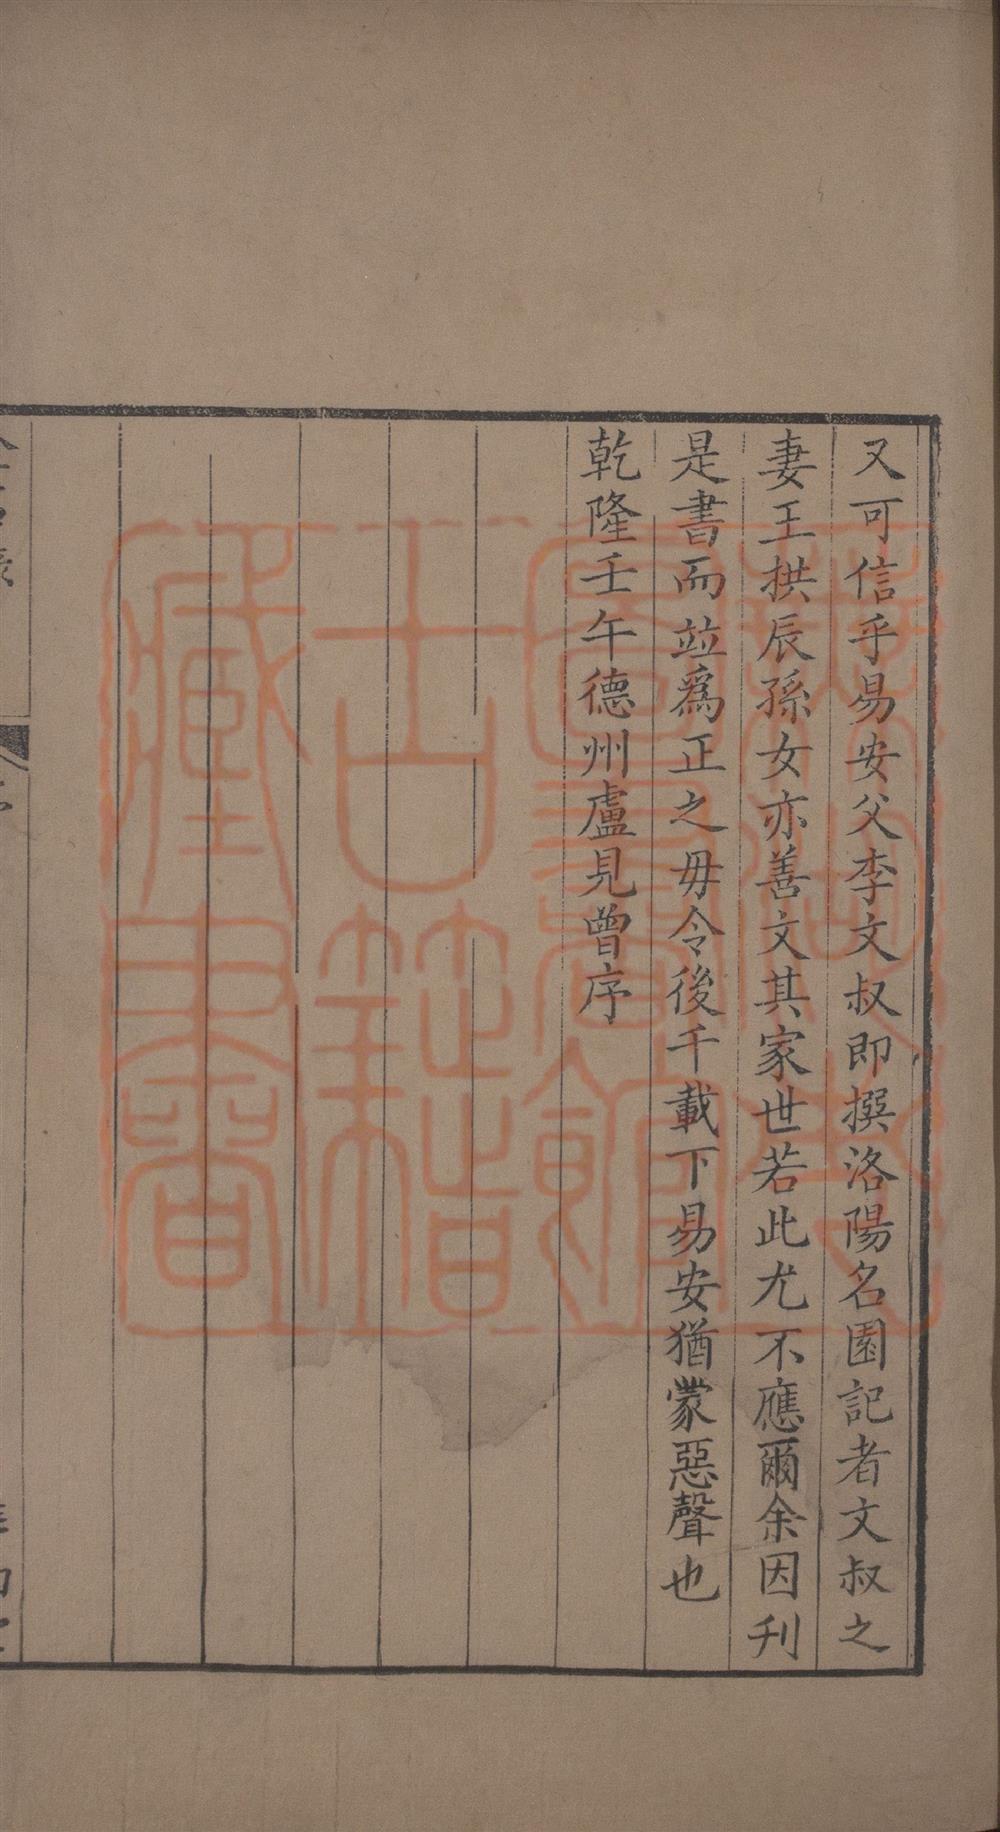 又可信乎易安父李文叔即撰洛陽名園記者文叔之
妻王拱辰孫女亦善文其家世若此尤不應爾余因刊
是書而並爲正之毋令後千載下易安猶蒙惡聲也
乾隆壬午德州盧見曾序
古籍
藏書